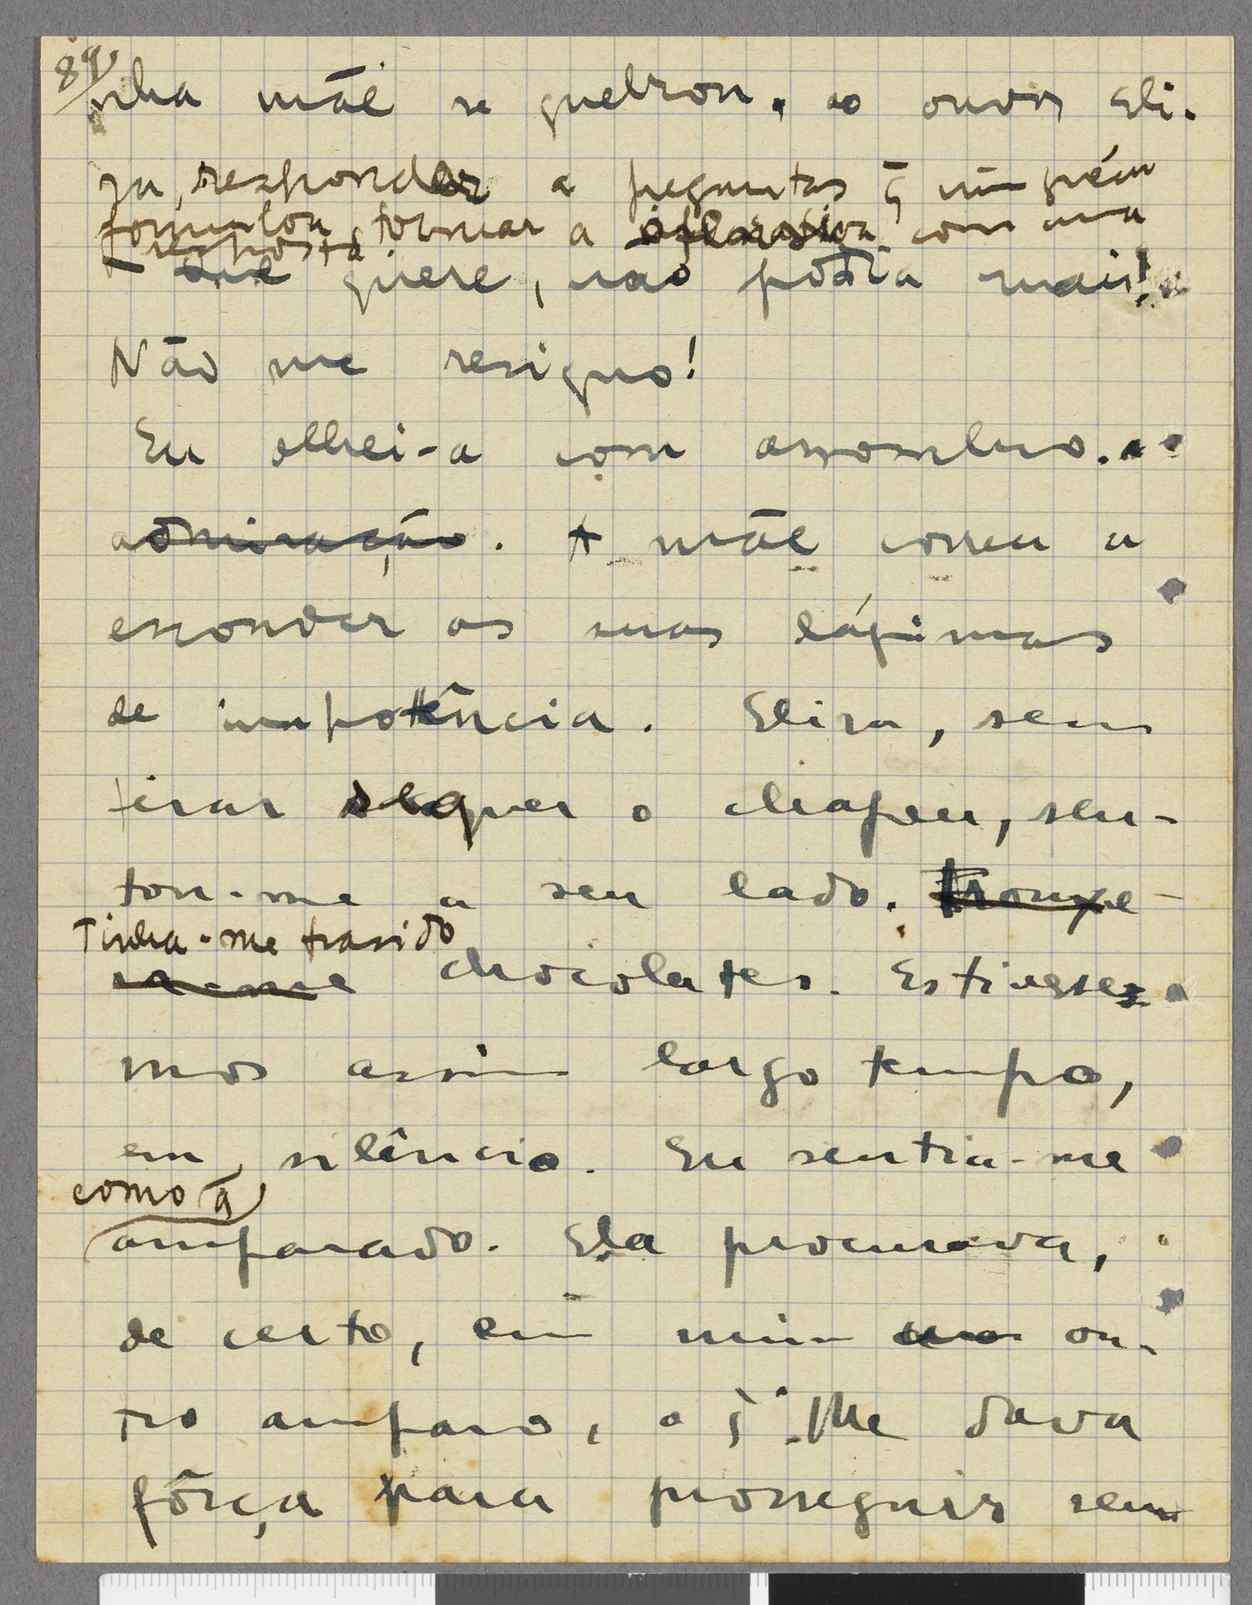 89
nha mãe se quebrou. ao ouvir Eli-
za, responder a preguntas q̃ ninguém
formulou, tornar a com uma
resposta
que quere, não podia mais!
Não me resigno!
Eu olhei-a com assombro.
admiração. A mãe correu a
esconder as suas lágrimas
de impotência. Eliza, sem
tirar sequer o chapeu, sen-
tou-me a seu lado. Trouxe-
Tinha-me trasido
ra-me chocolates. Estives-
mos assim largo tempo,
em silêncio. Eu sentia-me
como q̃
amparado. Ela procurava,
de certo, em mim um ou-
tro amparo, o q̃ lhe dava
fôrça para prosseguir sem